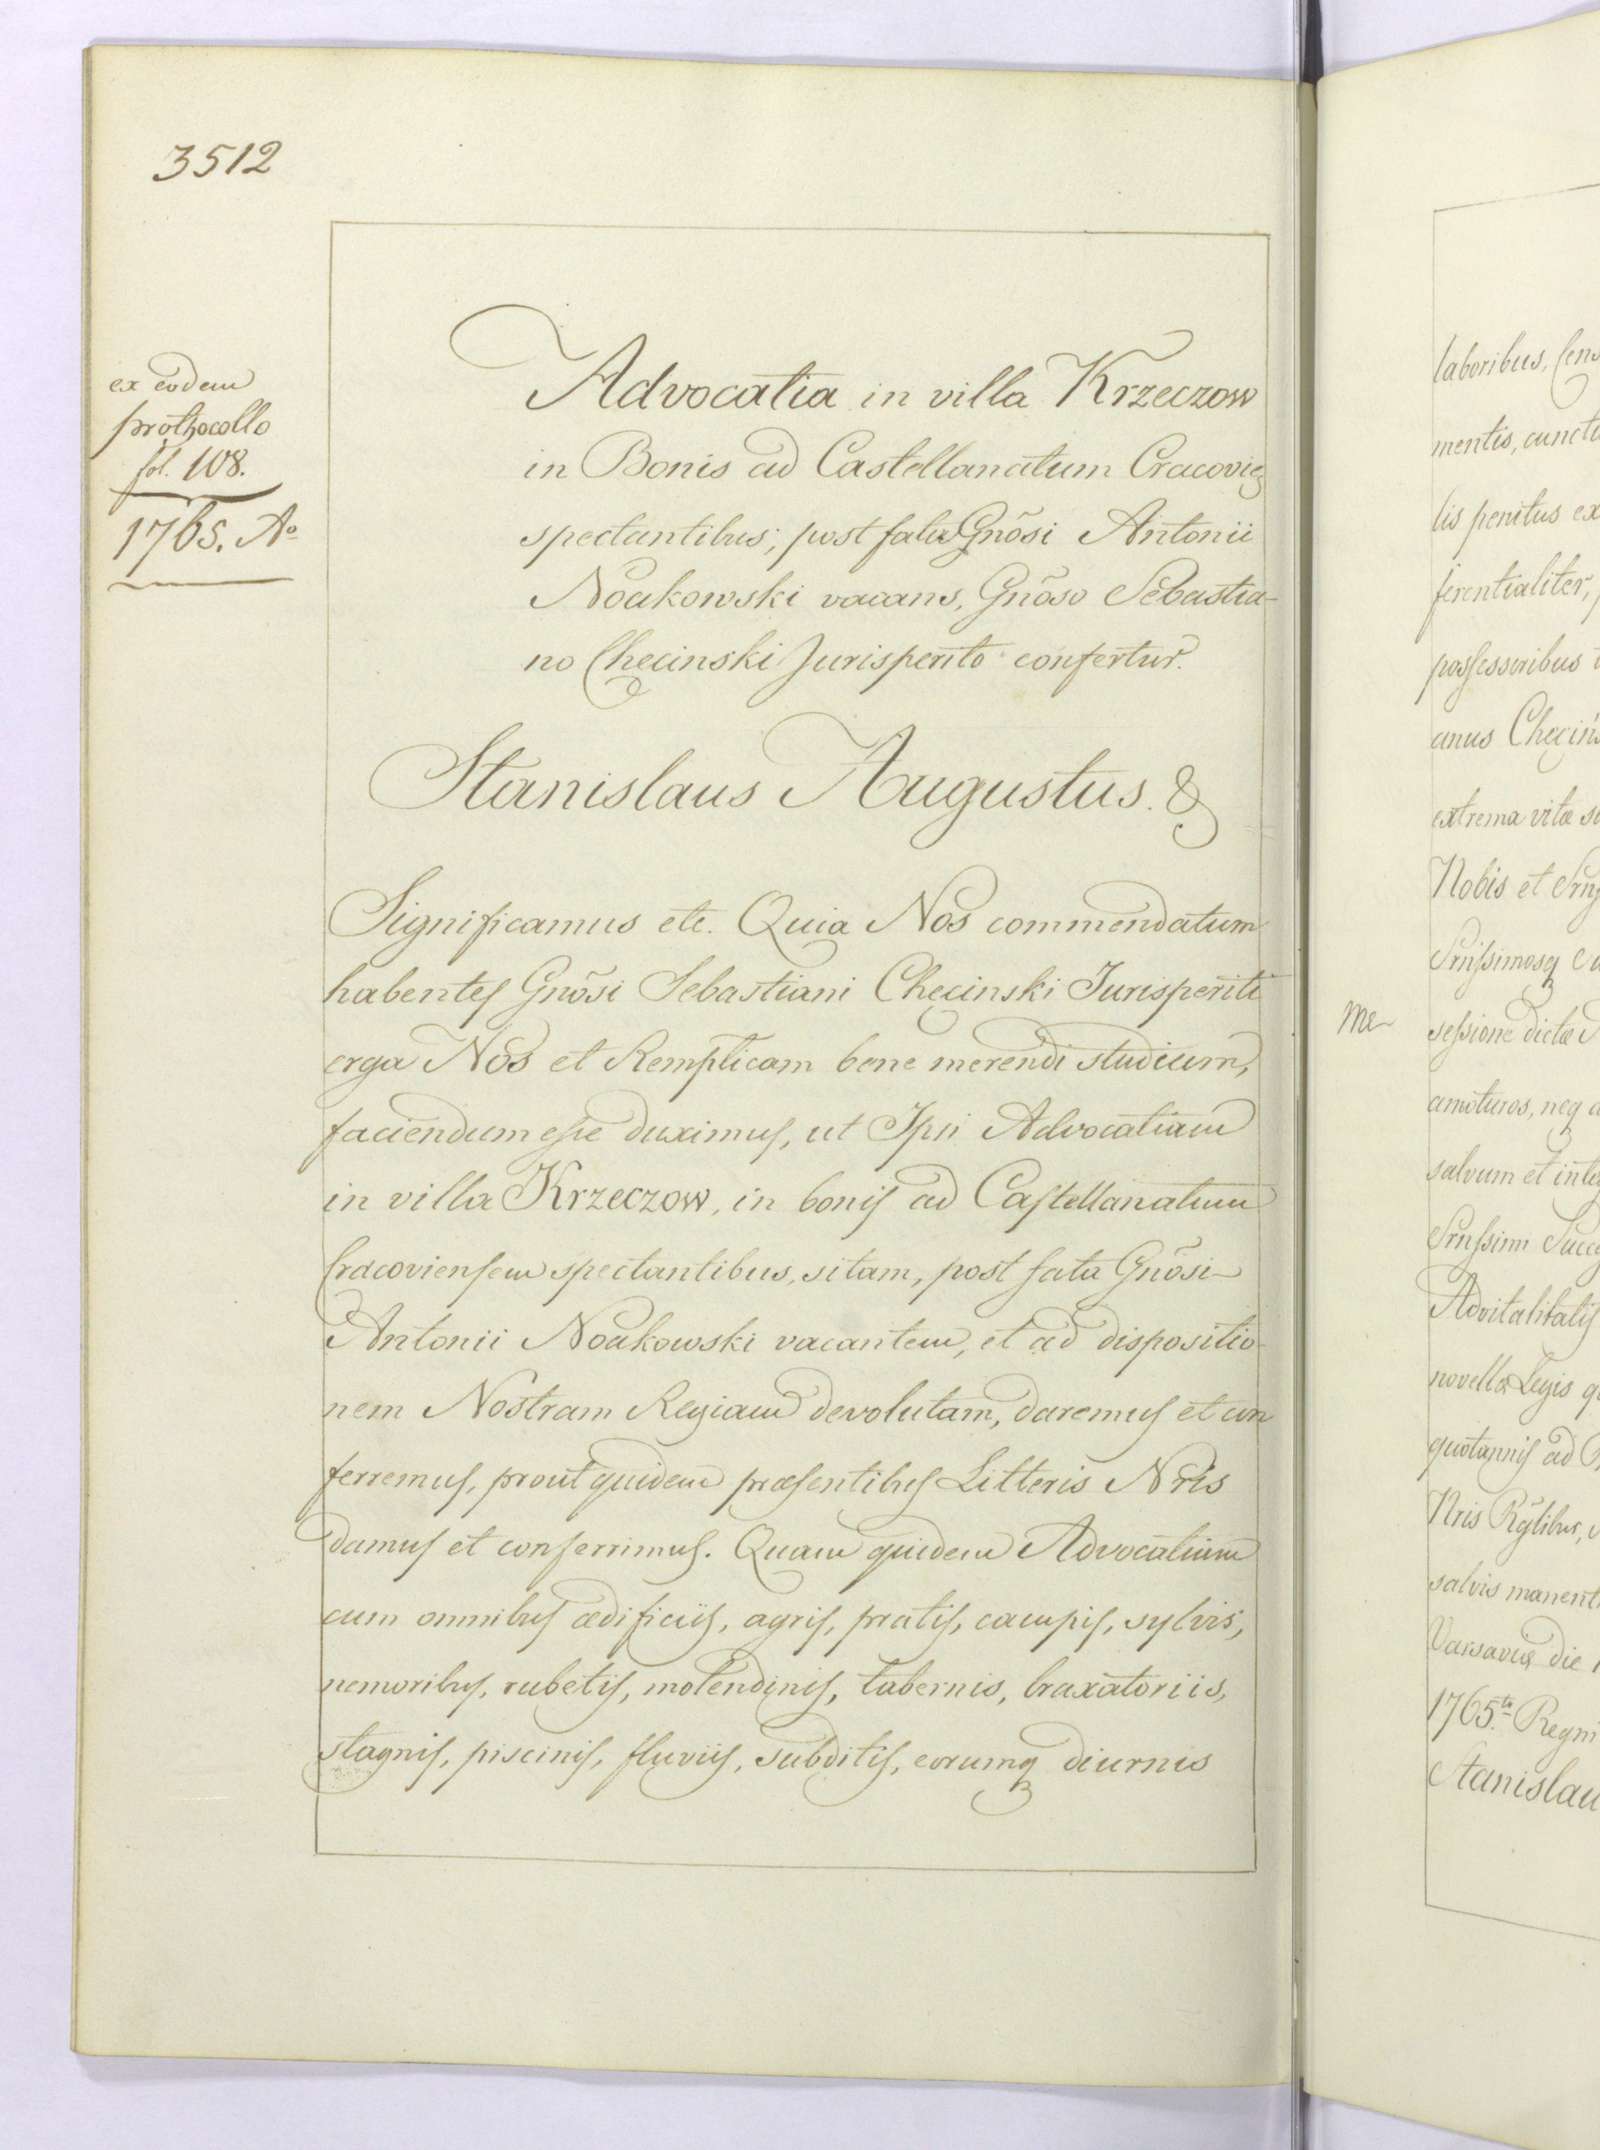 3512
ex eodem
prothocollo
fol. 108.
1765. Ao
Advocatia in villa Krzeczow
in Bonis ad Castellanatum Cracovię
spectantibus, post fata Gnõsi Antonii
Noakowski vacans, Gnõso Sebastia-
no Checinski Jurisperito confertur.
Stanislaus Augustus. &
Significamus etc. Quia Nos commendatum
habentes Gnõsi Sebastiani Chęcinski Jurisperiti
erga Nos et Remplicam bene merendi studium,
faciendum esse duximus, ut Ipsi Advocatiam
in villa Krzeczow, in bonis ad Castellanatum
Cracoviensem spectantibus, sitam, post fata Gnõsi
Antonii Noakowski vacantem, et ad dispositio-
nem Nostram Regiam devolutam, daremus et con
ferremus, prout quidem præsentibus Litteris Nris
damus et conferrimus. Quam quidem Advocatiam
cum omnibus ædificiis, agris, pratis, campis, sylvis,
nemoribus, rubetis, molendinis, tabernis, braxatoriis,
stagnis, piscinis, fluviis, subditis, eorumq diurnis
laboribus, Cens
mentis, cuncti
lis penitus ex
ferentialiter,
possessoribus
anus Checins
extrema vitæ
Nobis et
me
sessione dictæ
amoturos, neq
salvum et inte
Advitalitatis
novellæ Legis
quotannis ad
Nris
salvis manent
Varsavię die
1765. Regni
Stanislau